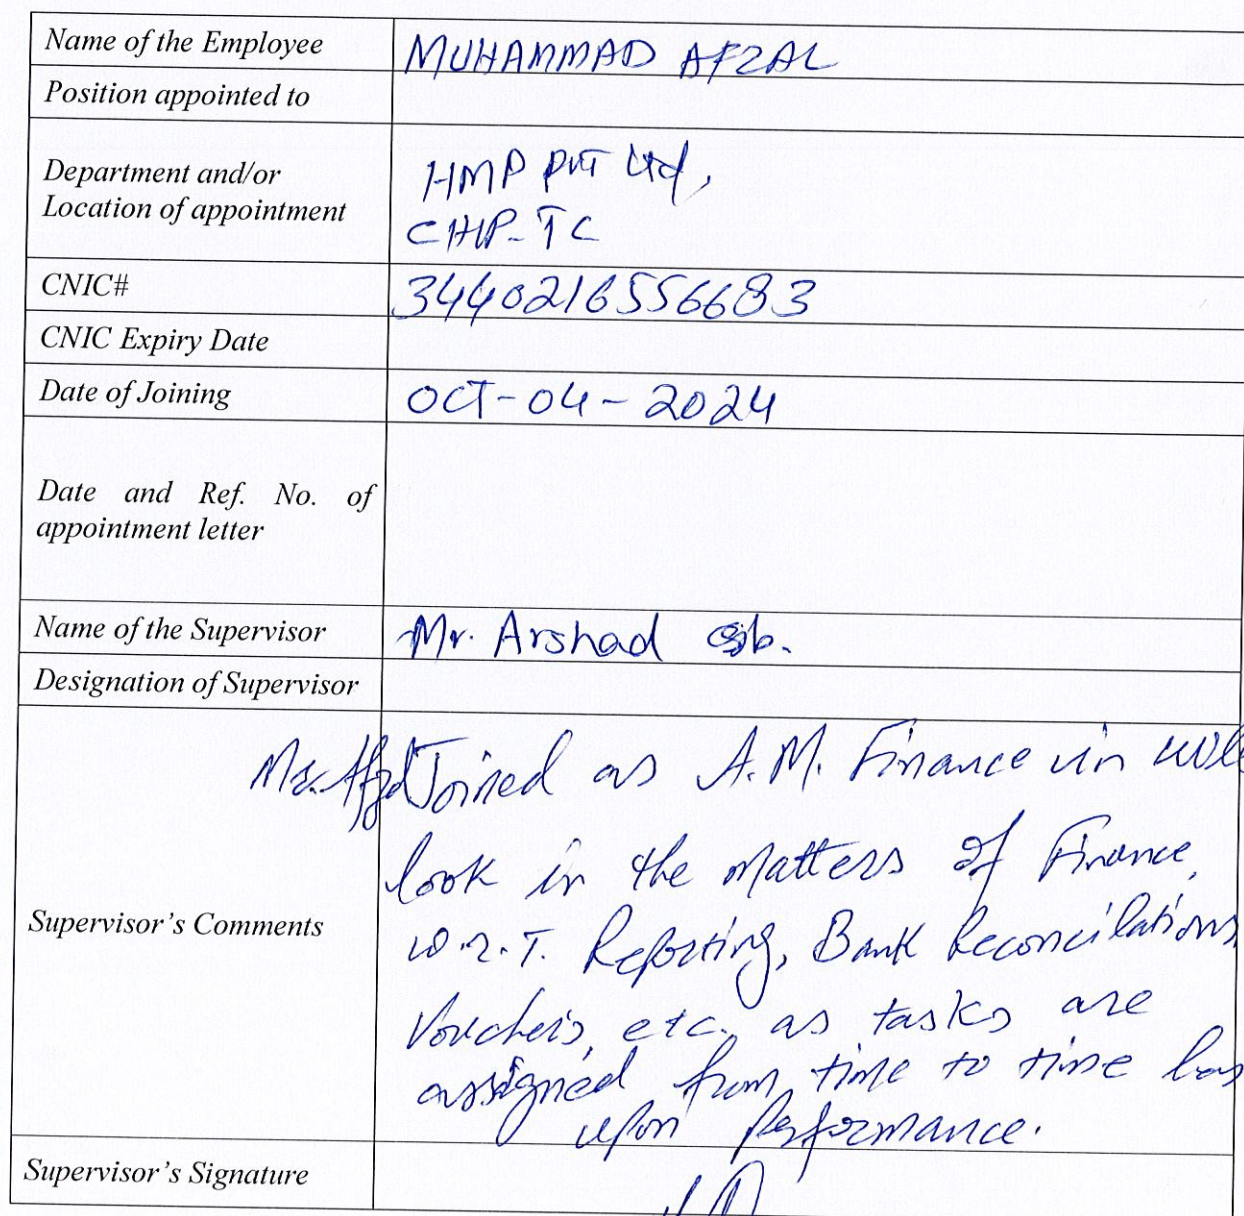 Name of the Employee MUHAMMAD AFZAL
Position appointed to
Department and/or HMP Pvt Ltd,
Location of appointment CHP-TC
CNIC# 3440216556683
CNIC Expiry Date
Date of Joining OCT-04-2024
Date and Ref. No. of
appointment letter
Name of the Supervisor Mr. Arshad
Designation of Supervisor
Mr. Afzal Joined as A.M. Finance
look in the matters of Finance,
Supervisor's Comments w.r.T. Reporting, Bank Reconcilations
Vouchers, etc. as tasks are
assigned from time to time bas
upon performance.
Supervisor's Signature